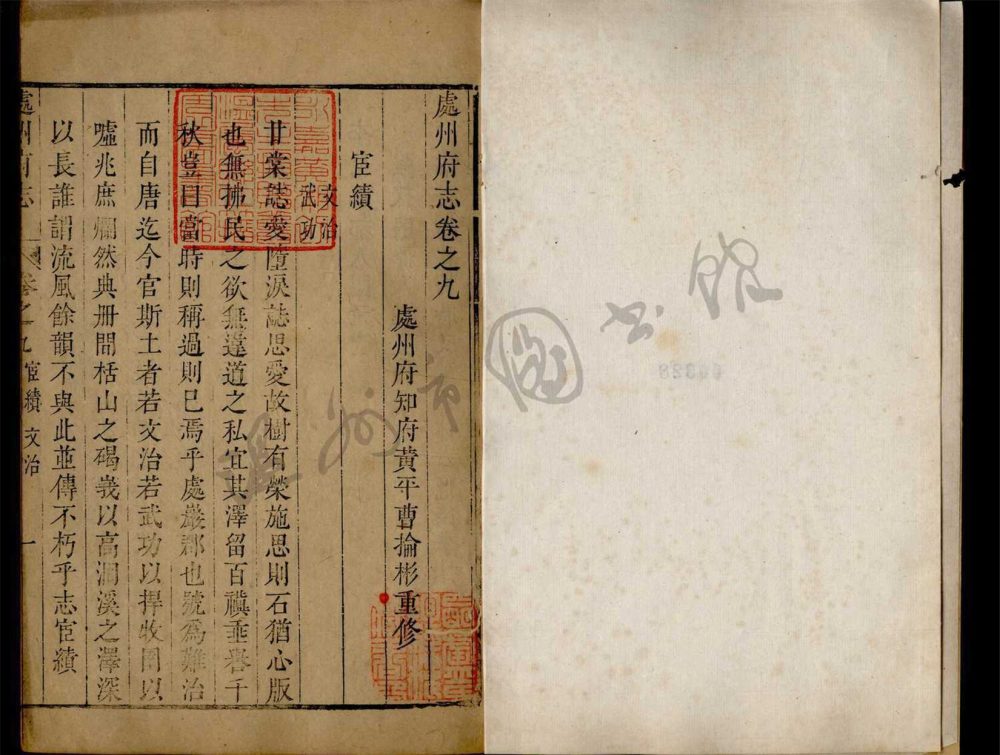 處州府志卷之九
處州府知府黃平曹掄彬重修
宦績
文治
武功
甘棠誌愛墮淚誌思愛故樹有榮施思則石猶心版
也無拂民之欲無違道之私宜其澤留百禩垂譽千
秋豈曰當時則稱過則已焉乎處巖郡也號為難治
而自唐迄今官斯土者若文治若武功以捍牧圉以
噓兆庶爛然典冊間栝山之碣峩以高洄溪之澤深
以長誰謂流風餘韻不與此並傳不朽乎志宦績
處州府志
卷之九 宦績 文治 一
州市圖書館